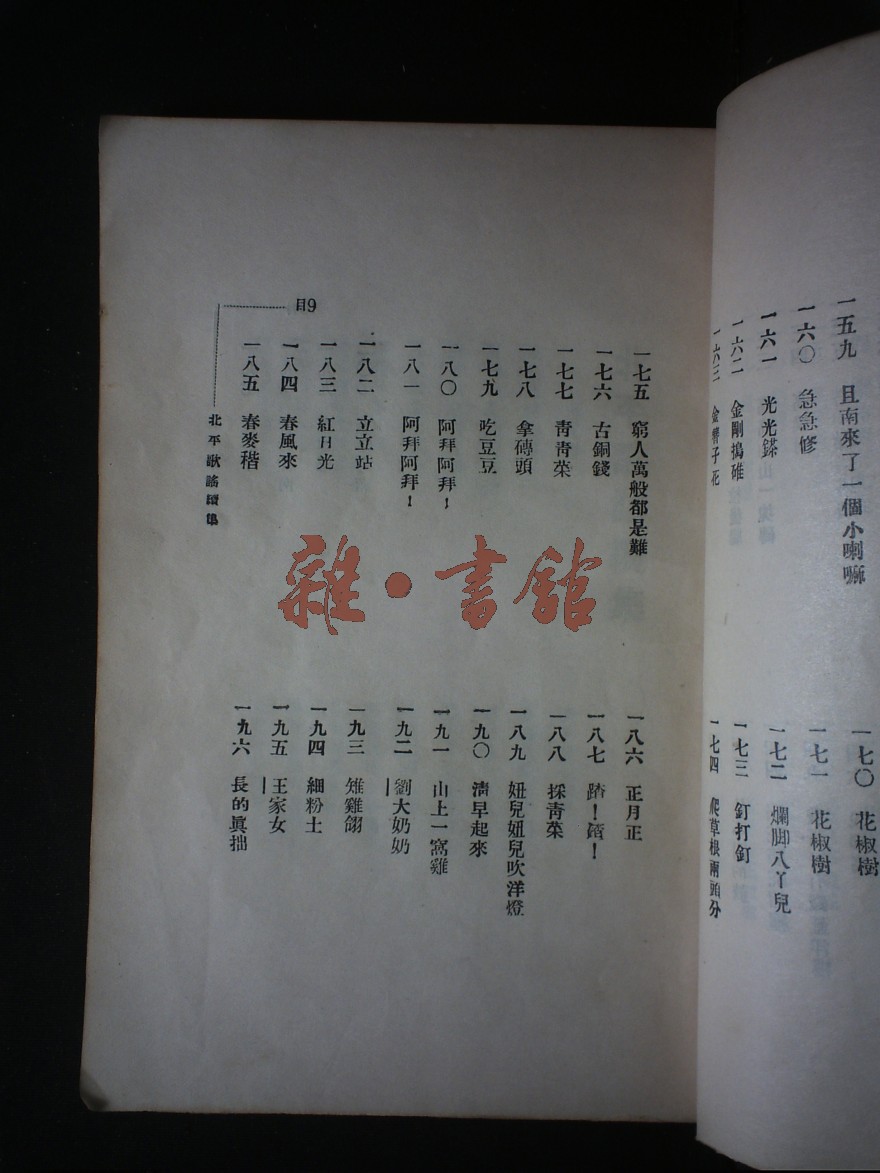 一五九 且南來了一個小喇嘛
一六〇 急急修
一六一 光光鎈
一六二 金剛搗碓
一六三 金子花
一七〇 花椒樹
一七一 花椒樹
一七二 爛脚八丫兒
一七三 釘打釘
一七四 爬草根兩頭分
一七五 窮人萬般都是難
一七六 古銅錢
一七七 青青菜
一七八 拿磚頭
一七九 吃豆豆
一八〇 阿拜阿拜！
一八一 阿拜阿拜！
一八二 立立站
一八三 紅日光
一八四 春風來
一八五 春麥稭
一八六 正月正
一八七 踏！踏！
一八八 採青菜
一八九 妞兒妞兒吹洋燈
一九〇 清早起來
一九一 山上一窩雞
一九二 劉大奶奶
一九三 雉雞翎
一九四 細粉土
一九五 王家女
一九六 長的眞拙
目9
北平歌謠續集
雜·書館